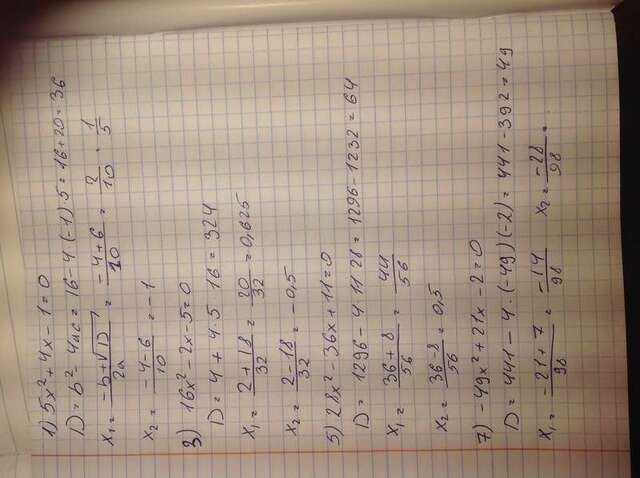 1) 5x² + 4x − 1 = 0
D = b² − 4ac = 16 − 4 (−1) 5 = 16 + 20 = 36
x₁ = (−b + √D)/2a = (−4 + 6)/10 = 2/10 = 1/5
x₂ = (−4 − 6)/10 = −1
3) 16x² − 2x − 5 = 0
D = 4 + 4 · 5 16 = 324
x₁ = (2 + 18)/32 = 20/32 = 0,625
x₂ = (2 − 18)/32 = −0,5
5) 28x² − 36x + 11 = 0
D = 1296 − 4 · 11 · 28 = 1296 − 1232 = 64
x₁ = (36 + 8)/56 = 44/56
x₂ = (36 − 8)/56 = 0,5
7) −49x² + 21x − 2 = 0
D = 441 − 4 · (−49) (−2) = 441 − 392 = 49
x₁ = (−21 + 7)/98 = −14/98 x₂ = −28/98 =